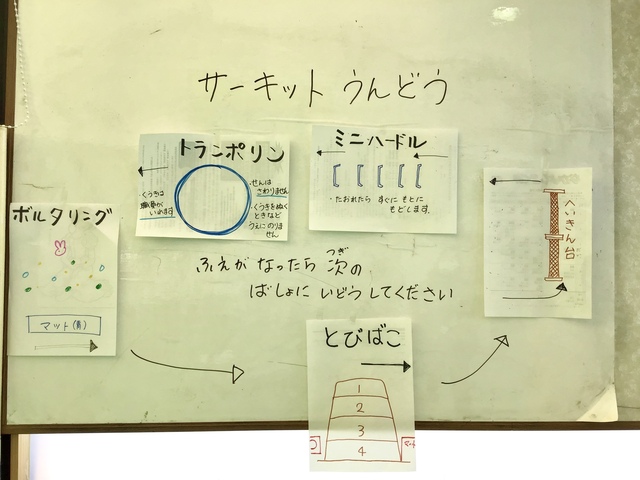 サーキット うんどう
トランポリン
・くうきは
職員が
いれます。
・せんは
さわりません
・くうきをぬく
ときなど
うえにのりま
せん
ミニハードル
・たおれたら すぐに もとに
もどします。
へいきん台
ボルタリング
マット(青)
ふえが なったら 次の
つぎ
ばしょに いどう してください
とびばこ
1
2
3
4